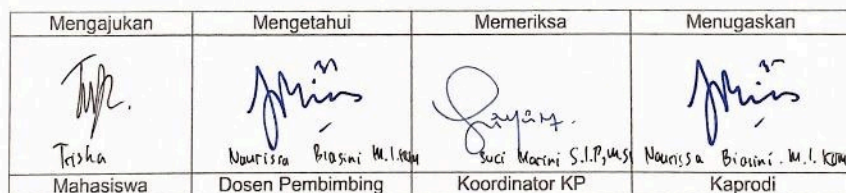 Mengajukan Mengetahui Memeriksa Menugaskan
Trisha Nourissa Biasini M.I.Kom Suci Marini S.I.P, M.Si Nourissa Biasini. M.I.Kom
Mahasiswa Dosen Pembimbing Koordinator KP Kaprodi